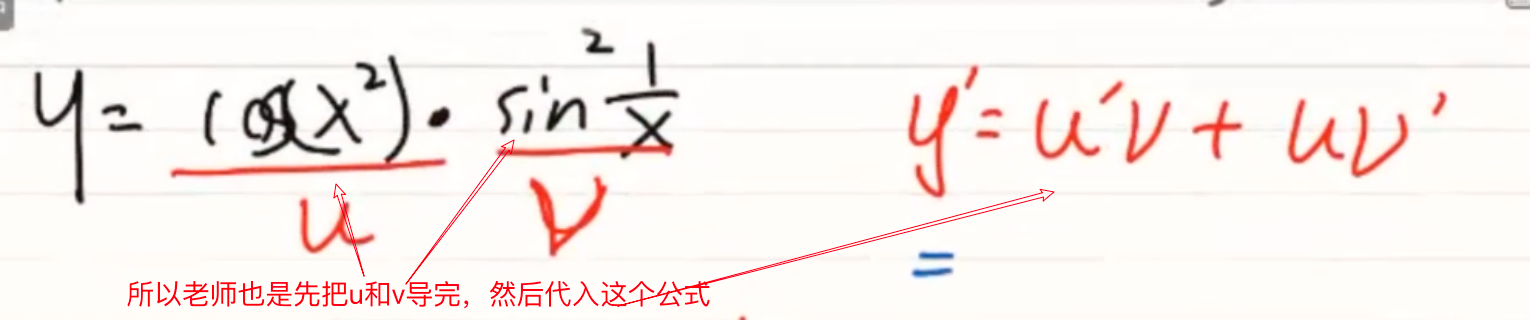 y = cos(x²) · sin² 1/x    y' = u'v + uv'
u    v    =
所以老师也是先把u和v导完，然后代入这个公式